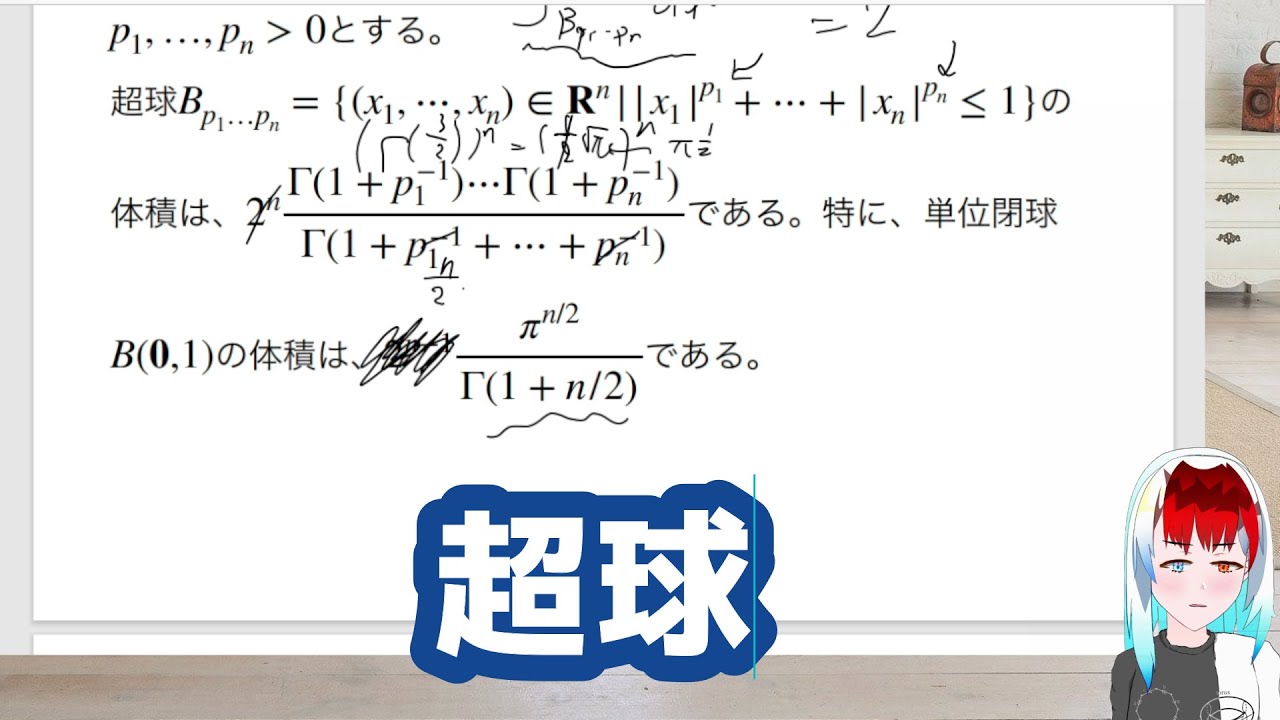 p₁, …, pₙ > 0とする。
= 2
超球B_{p₁…pₙ} = {(x₁, ⋯, xₙ) ∈ Rⁿ | |x₁|^{p₁} + ⋯ + |xₙ|^{pₙ} ≤ 1}の
(Γ(3/2))ⁿ = (1/2 √π)ⁿ π
体積は、2ⁿ Γ(1 + p₁⁻¹)⋯Γ(1 + pₙ⁻¹) / Γ(1 + p₁⁻¹ + ⋯ + pₙ⁻¹) である。特に、単位閉球
n/2
B(0,1)の体積は、 π^{n/2} / Γ(1 + n/2) である。
超球